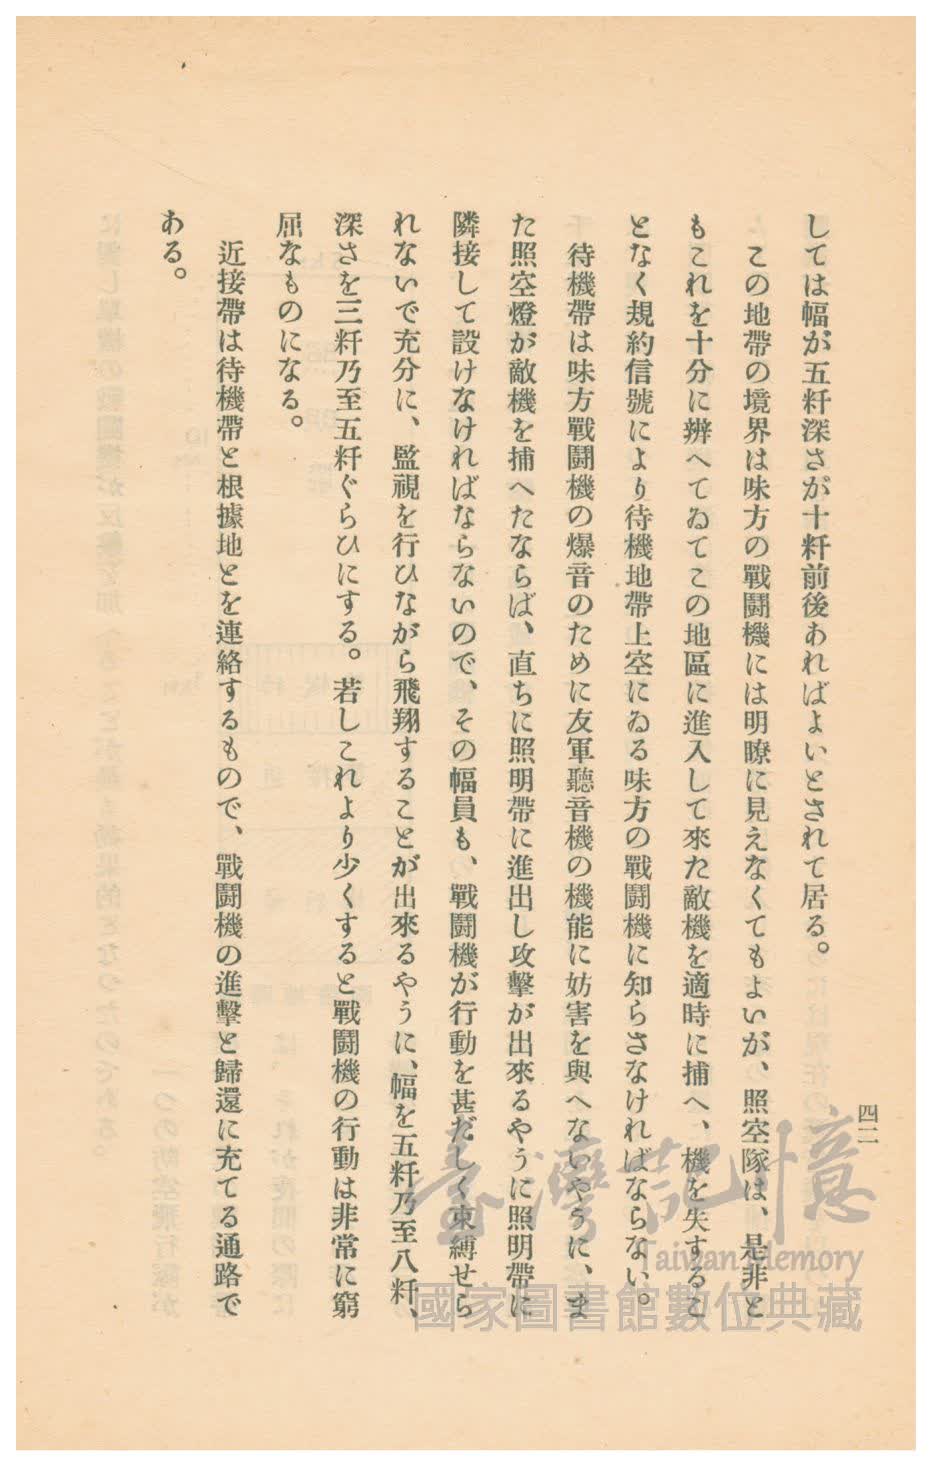 四二
しては幅が五粁深さが十粁前後あればよいとされて居る。
この地帶の境界は味方の戰鬪機には明瞭に見えなくてもよいが、照空隊は、是非と
もこれを十分に辨へてゐてこの地區に進入して來た敵機を適時に捕へ、機を失するこ
となく規約信號により待機地帶上空にゐる味方の戰鬪機に知らさなければならない。
待機帶は味方戰鬪機の爆音のために友軍聽音機の機能に妨害を與へないやうに、ま
た照空燈が敵機を捕へたならば、直ちに照明帶に進出し攻擊が出來るやうに照明帶に
隣接して設けなければならないので、その幅員も、戰鬪機が行動を甚だしく束縛せら
れないで充分に、監視を行ひながら飛翔することが出來るやうに、幅を五粁乃至八粁、
深さを三粁乃至五粁ぐらひにする。若しこれより少くすると戰鬪機の行動は非常に窮
屈なものになる。
近接帶は待機帶と根據地とを連絡するもので、戰鬪機の進擊と歸還に充てる通路で
ある。
臺灣記憶
Taiwan Memory
國家圖書館數位典藏